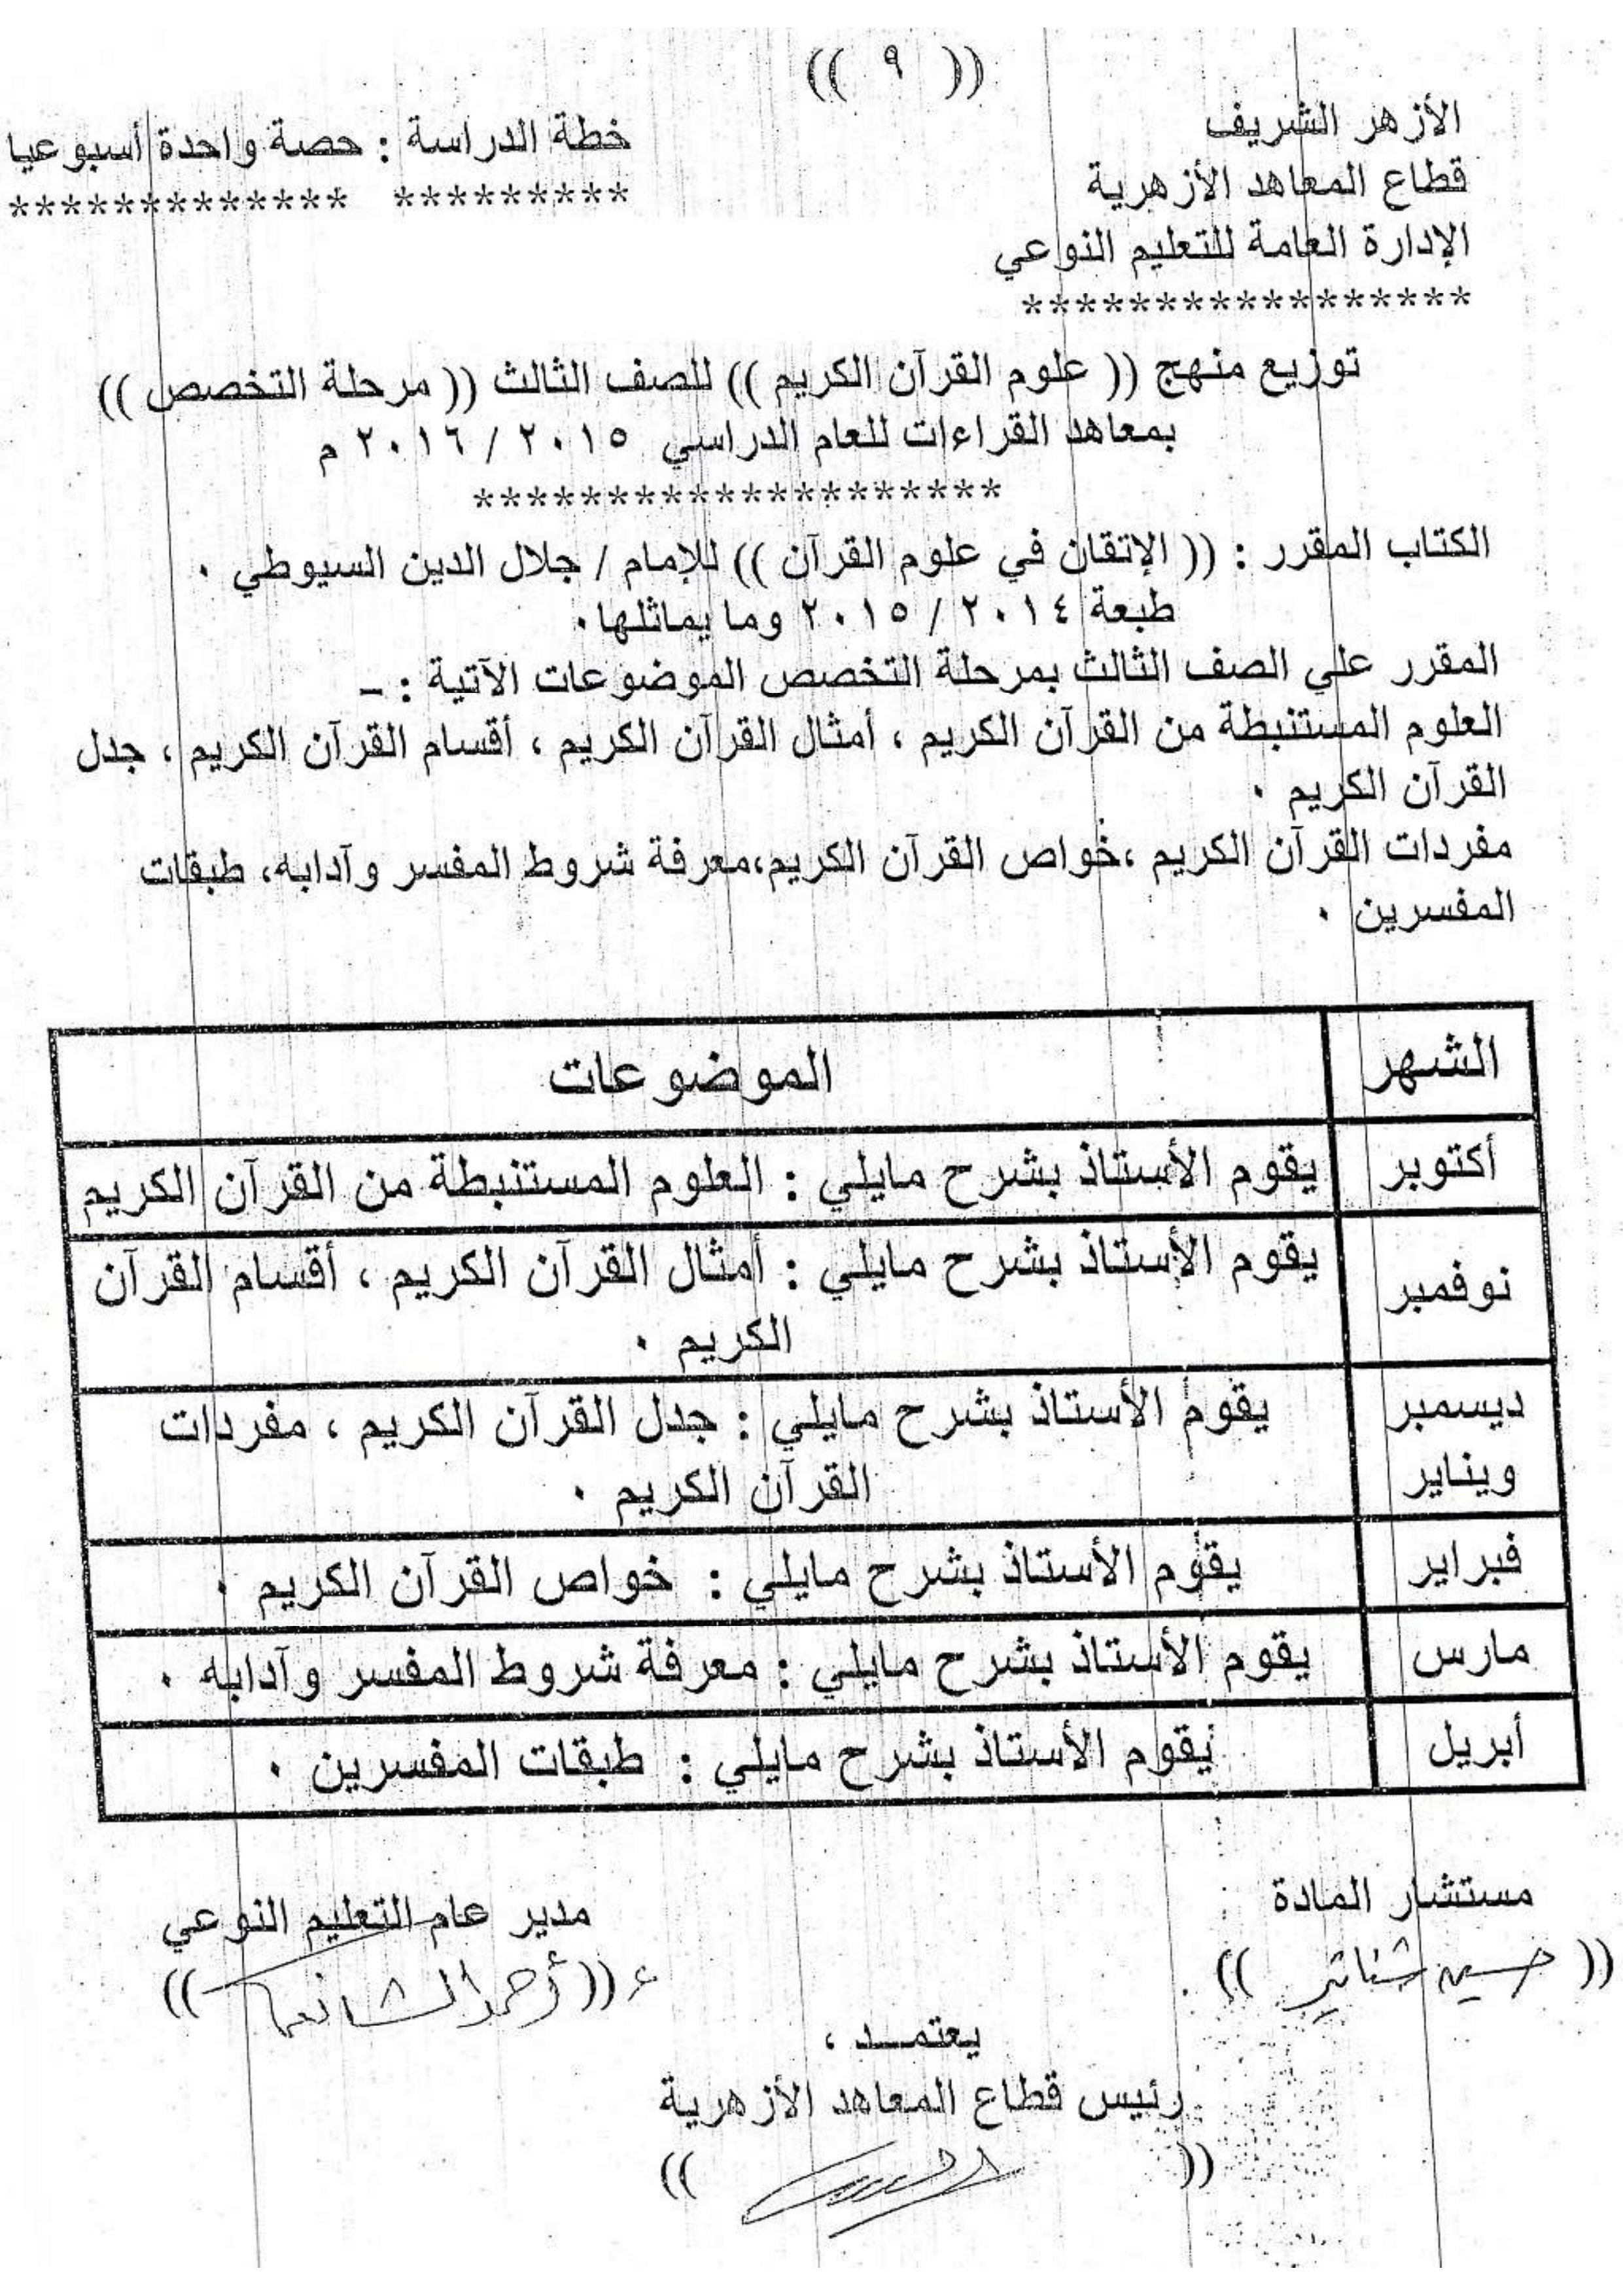 (( ٩ ))
الأزهر الشريف
خطة الدراسة : حصة واحدة أسبوعيا
قطاع المعاهد الأزهرية
************* *********
الإدارة العامة للتعليم النوعي
*****************
توزيع منهج (( علوم القرآن الكريم )) للصف الثالث (( مرحلة التخصص ))
بمعاهد القراءات للعام الدراسي ٢٠١٥ / ٢٠١٦ م
********************
الكتاب المقرر : (( الإتقان في علوم القرآن )) للإمام / جلال الدين السيوطي .
طبعة ٢٠١٤ / ٢٠١٥ وما يماثلها .
المقرر علي الصف الثالث بمرحلة التخصص الموضوعات الآتية : -
العلوم المستنبطة من القرآن الكريم ، أمثال القرآن الكريم ، أقسام القرآن الكريم ، جدل
القرآن الكريم .
مفردات القرآن الكريم ،خواص القرآن الكريم،معرفة شروط المفسر وآدابه، طبقات
المفسرين .
الشهر الموضوعات
أكتوبر يقوم الأستاذ بشرح مايلي : العلوم المستنبطة من القرآن الكريم
نوفمبر يقوم الأستاذ بشرح مايلي : أمثال القرآن الكريم ، أقسام القرآن
الكريم .
ديسمبر يقوم الأستاذ بشرح مايلي : جدل القرآن الكريم ، مفردات
ويناير القرآن الكريم .
فبراير يقوم الأستاذ بشرح مايلي : خواص القرآن الكريم .
مارس يقوم الأستاذ بشرح مايلي : معرفة شروط المفسر وآدابه .
أبريل يقوم الأستاذ بشرح مايلي : طبقات المفسرين .
مستشار المادة
مدير عام التعليم النوعي
(( حسين ))
(( أحمد ))
يعتمـــد ،
رئيس قطاع المعاهد الأزهرية
(( ))